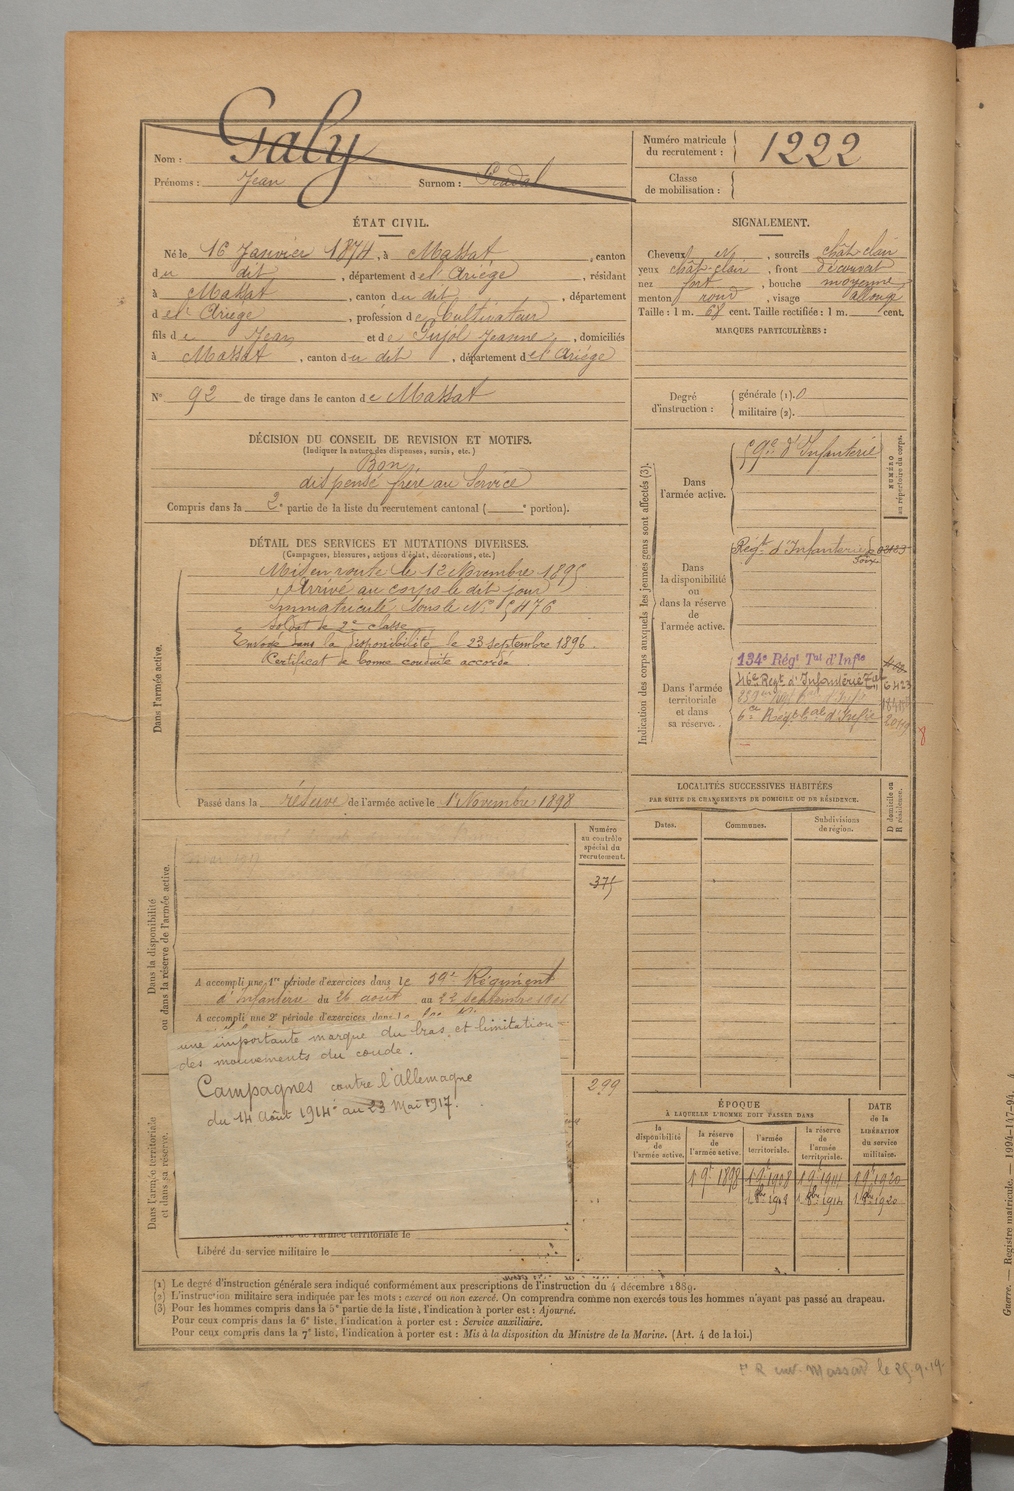 Nom : Galy
Prénoms : Jean Surnom :
Numéro matricule du recrutement : 1222
Classe de mobilisation :
ÉTAT CIVIL.
Né le 16 Janvier 1874, à Massat, canton
du dit, département de l'Ariège, résidant
à Massat, canton du dit, département
de l'Ariège, profession de Cultivateur
fils de Jean et de Pujol Jeanne, domiciliés
à Massat, canton du dit, département de l'Ariège
N° 92 de tirage dans le canton de Massat
SIGNALEMENT.
Cheveux, sourcils chât clair
yeux chât-clair, front découvert
nez fort, bouche moyenne
menton rond, visage allongé
Taille : 1 m. 68 cent. Taille rectifiée : 1 m. cent.
MARQUES PARTICULIÈRES :
Degré d'instruction : générale (1). 0
militaire (2).
DÉCISION DU CONSEIL DE REVISION ET MOTIFS.
(Indiquer la nature des dispenses, sursis, etc.)
Bon
dispensé frère au Service
Compris dans la 2e partie de la liste du recrutement cantonal ( e portion).
DÉTAIL DES SERVICES ET MUTATIONS DIVERSES.
(Campagnes, blessures, actions d'éclat, décorations, etc.)
Dans l'armée active.
Mis en route le 12 Novembre 1895
Arrivé au corps le dit jour
Immatriculé sous le N° 5476
Soldat de 2e classe
Envoyé dans la disponibilité le 23 septembre 1896.
Certificat de bonne conduite accordé.
Passé dans la réserve de l'armée active le 1er Novembre 1898
Indication des corps auxquels les jeunes gens sont affectés (3).
NUMÉRO au répertoire du corps.
Dans l'armée active.
59e d'Infanterie
Dans la disponibilité ou dans la réserve de l'armée active.
Régt d'Infanterie de Foix
Dans l'armée territoriale et dans sa réserve.
134e Régt Tal d'Infie
116e Regt d'Infanterie Tal 6423
6e Régt tal d'Infie
LOCALITÉS SUCCESSIVES HABITÉES
PAR SUITE DE CHANGEMENTS DE DOMICILE OU DE RÉSIDENCE.
Dates. Communes. Subdivisions de région. D domicile ou R résidence.
Dans la disponibilité ou dans la réserve de l'armée active.
Numéro au contrôle spécial du recrutement.
375
A accompli une 1re période d'exercices dans le 59e Régiment
d'Infanterie du 26 août au 22 septembre 1901
A accompli une 2e période d'exercices dans le
une importante marque du bras et limitation
des mouvements du coude.
Campagnes contre l'Allemagne
du 14 Août 1914 au 23 Mai 1917.
299
Dans l'armée territoriale et dans sa réserve.
de l'armée territoriale le
Libéré du service militaire le
ÉPOQUE
À LAQUELLE L'HOMME DOIT PASSER DANS
DATE de la LIBÉRATION du service militaire.
la disponibilité de l'armée active. la réserve de l'armée active. l'armée territoriale. la réserve de l'armée territoriale.
1 9e 1898 1 9e 1908 1 9e 1914 1 9e 1920
1 8bre 1908 1 8bre 1914 1 8bre 1920
(1) Le degré d'instruction générale sera indiqué conformément aux prescriptions de l'instruction du 4 décembre 1889.
(2) L'instruction militaire sera indiquée par les mots : exercé ou non exercé. On comprendra comme non exercés tous les hommes n'ayant pas passé au drapeau.
(3) Pour les hommes compris dans la 5e partie de la liste, l'indication à porter est : Ajourné.
Pour ceux compris dans la 6e liste, l'indication à porter est : Service auxiliaire.
Pour ceux compris dans la 7e liste, l'indication à porter est : Mis à la disposition du Ministre de la Marine. (Art. 4 de la loi.)
Massat le 25.9.19.
Guerre. — Registre matricule. — 1994-117-94. 4